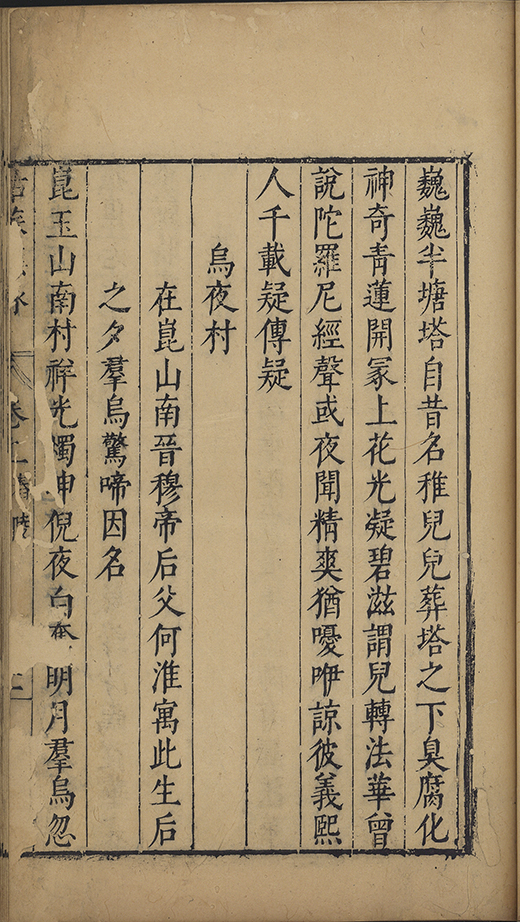 巍巍半塘塔自昔名稚兒兒葬塔之下臭腐化
神奇青蓮開冢上花光凝碧滋謂兒轉法華曾
說陀羅尼經聲或夜聞精爽猶嚘咿諒彼義熙
人千載疑傳疑
烏夜村
在崑山南晉穆帝后父何淮寓此生后
之夕羣烏驚啼因名
崑玉山南村祥光燭坤倪夜白明月羣烏忽
卷二